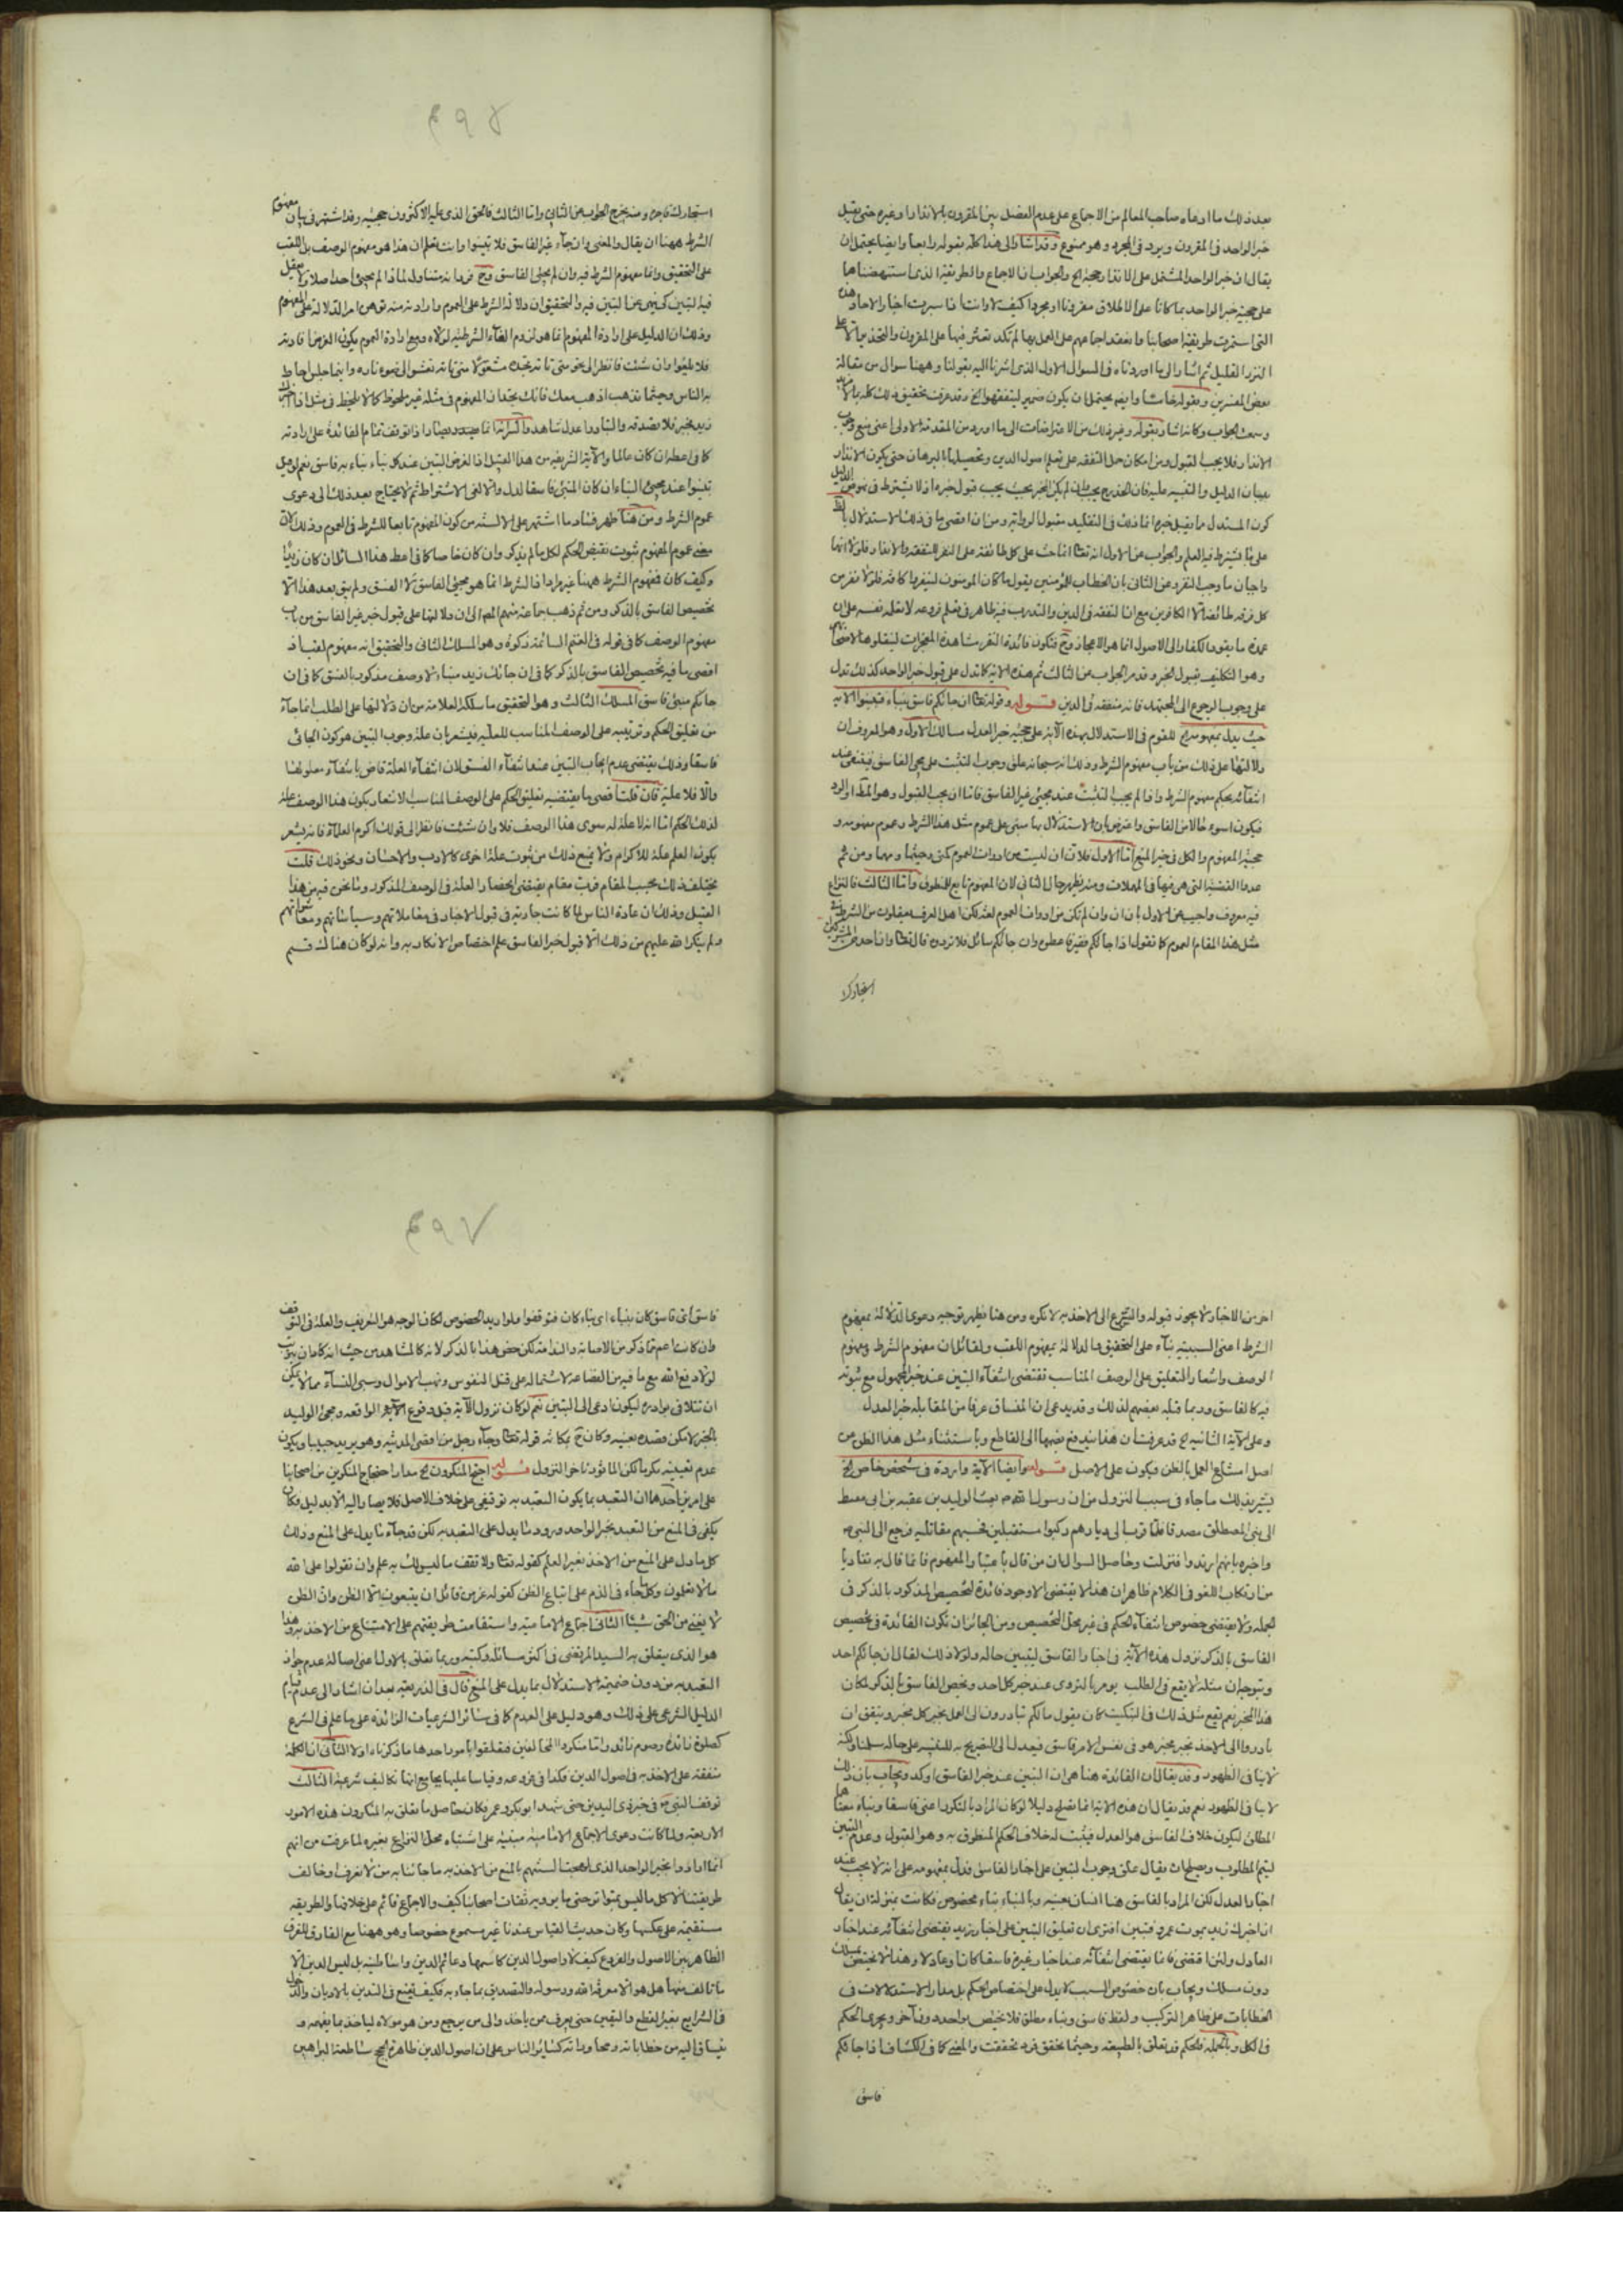 بعد ذلك ما ادعاه صاحب المعالم من الاجماع على عدم الفصل بين المقرون بالانذار وغيره حتى يقبل
خبر الواحد فى المقرون ويرد فى المجرد وهو ممنوع وقد اشار الى هذا كله بقوله رابعا وايضا يحتمل ان
يقال ان خبر الواحد المشتمل على الانذار حجة الخ والجواب ان الاجماع والطريقة الذين استنهضناها
على حجية خبر الواحد بما كانا على الاطلاق مقرونا او مجردا كيف لا وانت اذا سبرت اخبار الاحاد
التى استمرت طريقة اصحابنا وانعقد اجماعهم على العمل بها لم تكد تعثر فيها على المقرون والتحذير الا على
النزر القليل ثم اشار الى ما اوردناه فى السوال الاول الذى اشرنا اليه بقولنا وههنا سوال من مقالة
بعض المفسرين وبقوله خامسا وايضا يحتمل ان يكون ضمير ليتفقهوا الخ وقد عرفت تحقيق ذلك كله
وسمعت الجواب وكانه اشار بقوله وغير ذلك من الاعتراضات الى ما اورد من المقدمة الاولى اعنى منع وجوب
الانذار فلا يجب القبول ومن امكان حمل التفقه على تعلم اصول الدين وتحصيلها بالبرهان حتى يكون الانذار
ببيان الدليل والتنبيه عليه
كون المستدل ما يقبل خبره انما ذلك فى التقليد
على ما يشترط فيه العلم والجواب عن الاول انه تعالى انما حث على كل طائفة على النفر للتفقه والانذار فلولا انهما
واجبان ما وجب النفر وعن الثانى بان الخطاب للمؤمنين يقول ما كان المؤمنون لينفروا كافة فلولا نفر من
كل فرقة طائفة لا الكافرين مع ان التفقه فى الدين والتدرب فيه ظاهر فى تعلم فروعه
عمدة ما يقود الكفار الى الاصول انما هو الاعجاز وح فتكون فائدة النفر مشاهدة المعجزات لينقلوها
وهو التكليف بقبول الخبر وقد مر الجواب عن الثالث ثم هذه الاية كما تدل على قبول خبر الواحد كذلك تدل
على وجوب الرجوع الى المجتهد فانه متفقه فى الدين قوله وقوله تعالى ان جائكم فاسق بنباء فتبينوا الاية
حيث يدل بمفهومه الخ للقوم فى الاستدلال بهذه الاية على حجية خبر العدل مسالك الاول وهو المعروف ان
دلالتها على ذلك من باب مفهوم الشرط وذلك انه سبحانه علق وجوب التثبت على مجئ الفاسق فينتفى عند
انتفائه بحكم مفهوم الشرط واذا لم يجب التثبت عند مجئ غير الفاسق فاما ان يجب القبول وهو المط او الرد
فيكون اسوء حالا من الفاسق واعترض بان الاستدلال بها مبنى على عموم مثل هذا الشرط وعموم مفهومه و
حجية المفهوم والكل فى حيز المنع اما الاول فلان ان ليست من ادوات العموم كمتى وحيثما ومهما ومن ثم
عدوا القضية التى هى فيها فى المهملات ومنه يظهر حال الثانى لان المفهوم تابع للمنطوق واما الثالث فالنزاع
فيه معروف واجيب عن الاول بان ان وان لم تكن من ادوات العموم لغة لكن اهل العرف يعقلون من الشرط
مثل هذا المقام العموم كما تقول اذا جائكم فقير فاعطوه وان جائكم سائل فلا تردوه قال تعالى وان احد من المشركين
استجارك
٤٩٨
استجارك فاجره ومنه يخرج الجواب عن الثانى واما الثالث فالحق الذى عليه الاكثرون حجيته وقد اشتهر فى بيان مفهوم
الشرط ههنا ان يقال والمعنى وان جاء غير الفاسق فلا تبينوا وانت تعلم ان هذا هو مفهوم الوصف بل اللقب
على التحقيق وانما مفهوم الشرط فيه وان لم يجئ الفاسق وح فربما يتناول لما اذا لم يجئ احد اصلا ولا يعقل
فيه التبين كى ينهى عن التبين فيه والتحقيق ان دلالة الشرط على العموم وارادته منه توهن امر الدلالة على المفهوم
وذلك ان الدليل على ارادة المفهوم انما هو لزوم الغاء الشرطية لولاه ومع ارادة العموم يكون الغرض افادته
فلا تلغو وان شئت فانظر الى نحو متى تاته تعشو الى ضوء ناره واينما جلس احاط
به الناس وحيثما تذهب اذهب معك فانك تجد ان المفهوم فى مثله غير ملحوظ كما لا يلحظ فى مثل اذا اخبرك
زيد بخبر فلا تصدقه والشاردا عدل شاهد والسر انه انما يصار اذا توقف تمام الفائدة على ارادته
كما فى اعطه ان كان عالما والاية الشريفة من هذا القبيل اذ الغرض التبين عند كل نباء نباء به فاسق نعم لو قيل
تبينوا عند مجئ النباء ان كان المنبئ فاسقا لدل والا لغى الاشتراط ثم لا يحتاج بعد ذلك الى دعوى
عموم الشرط ومن هنا ظهر فساد ما اشتهر على الالسنة من كون المفهوم تابعا للشرط فى العموم وذلك لان
معنى عموم المفهوم ثبوت نقيض الحكم لكل ما لم يذكر وان كان خاصا كما فى اعط هذا السائل ان كان زيدا
وكيف كان فمفهوم الشرط ههنا غير مراد اذ الشرط انما هو مجئ الفاسق لا الفسق ولم يبق بعد هذا الا
تخصيص الفاسق بالذكر ومن ثم ذهب جماعة منهم الى ان دلالتها على قبول خبر غير الفاسق من باب
مفهوم الوصف كما فى قوله فى الغنم السائمة زكوة وهو المسلك الثانى والتحقيق انه مفهوم لقب اذ
اقصى ما فيه تخصيص الفاسق بالذكر كما فى ان جائك زيد بنباء لا وصف مذكور بالفسق كما فى ان
جائكم منبئ فاسق المسلك الثالث وهو التحقيق ما سلكه العلامة من ان دلالتها على الطلب انما جاء
من تعليق الحكم وترتيبه على الوصف المناسب للعلية فيشعر بان علة وجوب التبين هو كون الجائى
فاسقا وذلك يقتضى عدم ايجاب التبين عند انتفاء الفسق لان انتفاء العلة قاض بانتفاء معلولها
والا فلا علية فان قلت اقصى ما يقتضيه تعليق الحكم على الوصف المناسب الاشعار بكون هذا الوصف علة
لذلك الحكم اما انه لا علة له سوى هذا الوصف فلا وان شئت فانظر الى قولك اكرم العلماء فانه يشعر
بكون العلم علة للاكرام ولا يمنع ذلك من ثبوت علة اخرى كالادب والاحسان ونحو ذلك قلت
يختلف ذلك بحسب المقام فرب مقام يقتضى انحصار العلة فى الوصف المذكور وما نحن فيه من هذا
القبيل وذلك ان عادة الناس لما كانت جارية فى قبول الاخبار فى معاملاتهم وسياساتهم
ولم ينكر الله عليهم من ذلك الا قبول خبر الفاسق علم اختصاص الانكار به وانه لو كان هناك قسم
اخر من الاخبار لا يجوز قبوله والتسرع الى الاخذ به لانكره ومن هنا ظهر توجيه دعوى الدلالة بمفهوم
الشرط اعنى السببية بناء على التحقيق والدلالة بمفهوم اللقب ولقائل ان مفهوم الشرط ومفهوم
الوصف واشعار التعليق على الوصف المناسب تقتضى انتفاء التبين عند خبر المجهول مع ثبوته
فيه كالفاسق وربما قبله بعضهم لذلك وقد يدعى ان المنساق عرفا من المقابلة خبر العدل
وعلى الاية الثانية الخ قد عرفت ان هذا يندفع بضمها الى القاطع وباستثناء مثل هذا الظن من
اصل امتناع العمل بالظن فيكون على الاصل قوله وايضا الاية واردة فى شخص خاص الخ
يشير بذلك ما جاء فى سبب النزول من ان رسول الله ص بعث الوليد بن عقبة بن ابى معيط
الى بنى المصطلق مصدقا فلما قرب الى ديارهم ركبوا مستقبلين فحسبهم مقاتليه فرجع الى النبى ص
واخبره بانهم ارتدوا فنزلت وحاصل السوال ان من قال باعتبار المفهوم فانما قال به تفاديا
من ارتكاب اللغو فى الكلام ظاهر ان هذا لا يقتضى الا وجود فائدة لتخصيص المذكور بالذكر فى
الجملة ولا يقتضى خصوص انتفاء الحكم فى غير محل التخصيص ومن الجائز ان تكون الفائدة فى تخصيص
الفاسق بالذكر نزول هذه الاية فى اخبار الفاسق ليتبين حاله ولولا ذلك لقال ان جائكم احد
ويتوجه ان مثله لا يقع فى الطلب يومر بالتروى عند خبر كل احد ويخص الفاسق بالذكر لمكان
هذا المخبر نعم يقع مثل ذلك فى التبكيت كان يقول مالكم تبادرون الى العمل بخبر كل مخبر ويتفق ان
بادروا الى الاخذ بخبر مخبر هو فى نفس الامر فاسق فيعدل الى التصريح به للتنبيه على حاله سلمنا ولكنه
لاينا فى الظهور وقد يقال ان الفائدة هنا هى ان التبين عند خبر الفاسق اوكد ويجاب بان ذلك
لا ينافى الظهور نعم قد يقال ان هذه الاية انما تصلح دليلا لو كان المراد بالنكرة اعنى فاسقا ونباء معناها
المطلق ليكون خلاف الفاسق هو العدل فيثبت له خلاف الحكم المنطوق به وهو القبول وعدم التبين
ليتم المطلوب ويصلح ان يقال علق وجوب التبين على اخبار الفاسق فدل بمفهومه على انه لا يجب عند
اخبار العدل لكن المراد بالفاسق هنا انسان بعينه وبالنباء نباء مخصوص فكانت بمنزلة ان يقال
ان اخبرك زيد بموت عمرو فتبين افترى ان تعليق التبين على اخبار زيد يقتضى انتفائه عند اخبار
العادل ولئن اقتضى فانما يقتضى انتفائه عند اخبار غيره فاسقا كان او عادلا وهذا لا يختص بمسلك
دون مسلك ويجاب بان خصوص السبب لا يدل على اختصاص الحكم بل مدار الاستدلالات فى
الخطابات على ظاهر التركيب ولفظ فاسق ونباء مطلق فلا يختص بواحد دون اخر ويجرى الحكم
فى الكل وبالجملة فالحكم قد تعلق بالطبيعة وحيثما تحقق فرد تحققت والمعنى كما فى الكشاف اذا جائكم
فاسق
٤٩٧
فاسق اى فاسق كان بنباء اى نباء كان فتوقفوا فلو اريد الخصوص لكان الوجه هو التعريف والعلة فى التوقف
وان كانت اعم مما ذكر من الاصابة والندامة لكن خص هذا بالذكر لانه كالمشاهد من حيث انه كاد ان يترتب
لولا دفع الله مع ما فيه من الفظاعة لاشتماله على قتل النفوس ونهب الاموال وسبى النساء مما لا يمكن
ان تتلافى بوادره ليكون ادعى الى التبين نعم لو كان نزول الاية قبل وقوع الواقعة ومجئ الوليد
بالخبر لامكن قصده بعينه وكان ح بمكانة قوله تعالى وجاء رجل من اقصى المدينة وهو يريد حبيبا ويكون
عدم تعيينه تكرما لكن الماثور تاخر النزول قوله احتج المنكرون الخ مدار احتجاج المنكرين من اصحابنا
على امرين احدهما ان التعبد بما يكون التعبد به توقيفى على خلاف الاصل فلا يصار اليه الا بدليل وكان
يكفى فى المنع من التعبد بخبر الواحد ورود ما يدل على التعبد به لكن قد جاء ما يدل على المنع وذلك
كل ما دل على المنع من الاخذ بغير العلم كقوله تعالى ولا تقف ما ليس لك به علم وان تقولوا على الله
ما لا تعلمون وكل ما جاء فى الذم على اتباع الظن كقوله عز من قائل ان يتبعون الا الظن وان الظن
لا يغنى من الحق شيئا الثانى اجماع الامامية واستقامت طريقتهم على الامتناع من الاخذ به وهذا
هو الذى يتعلق به السيد المرتضى فى اكثر مسائله وكتبه وربما تعلق بالاول اعنى اصالة عدم جواز
التعبد به من دون ضميمة الاستدلال بما يدل على المنع قال فى الذريعة بعد ان اشار الى عدم قيام
الدليل الشرعى على ذلك وهو دليل على العدم كما فى سائر الشرعيات الزائدة على ما علم فى الشرع
كصلوة زائدة وصوم زائد واما منكروه المخالفين فتعلقوا بامور احدها ما ذكرناه اولا الثانى ان الكلمة
متفقة على الاخذ به فى اصول الدين فكذا فى فروعه وقياسا عليها بجامع انها تكاليف شرعية الثالث
توقف النبى ص فى خبر ذى اليدين حتى شهد ابو بكر وعمر فكان حاصل ما تعلق به المنكرون هذه الامور
الاربعة ولما كانت دعوى الاجماع الامامية مبنية على اشتباه محل النزاع بغيره لما عرفت من انهم
انما ارادوا بخبر الواحد الذى لهجت السنتهم بالمنع من الاخذ به ما جائنا به من لا نعرف او خالف
طريقتنا لا كل ما ليس بمتواتر حتى ما يرويه ثقات اصحابنا كيف والاجماع قائم على خلافها والطريقة
مستقيمة على عكسها وكان حديث القياس عندنا غير مسموع خصوصا وهو ههنا مع الفارق للفرق
الظاهر بين الاصول والفروع كيف لا واصول الدين كاسمها دعائم الدين واساطينه بل ليس الدين الا
ما تالف منها هل هو الا معرفة الله ورسوله والتصديق بما جاء به فكيف يقنع فى التدين بالاديان والدخول
فى الشرايع بغير القطع واليقين حتى يعرف ممن ياخذ والى من يرجع ومن هو مولاه لياخذ بما يفهمه و
ينساق اليه من خطاباته ومحاوراته كسائر الناس على ان اصول الدين ظاهرة الحجج ساطعة البراهين